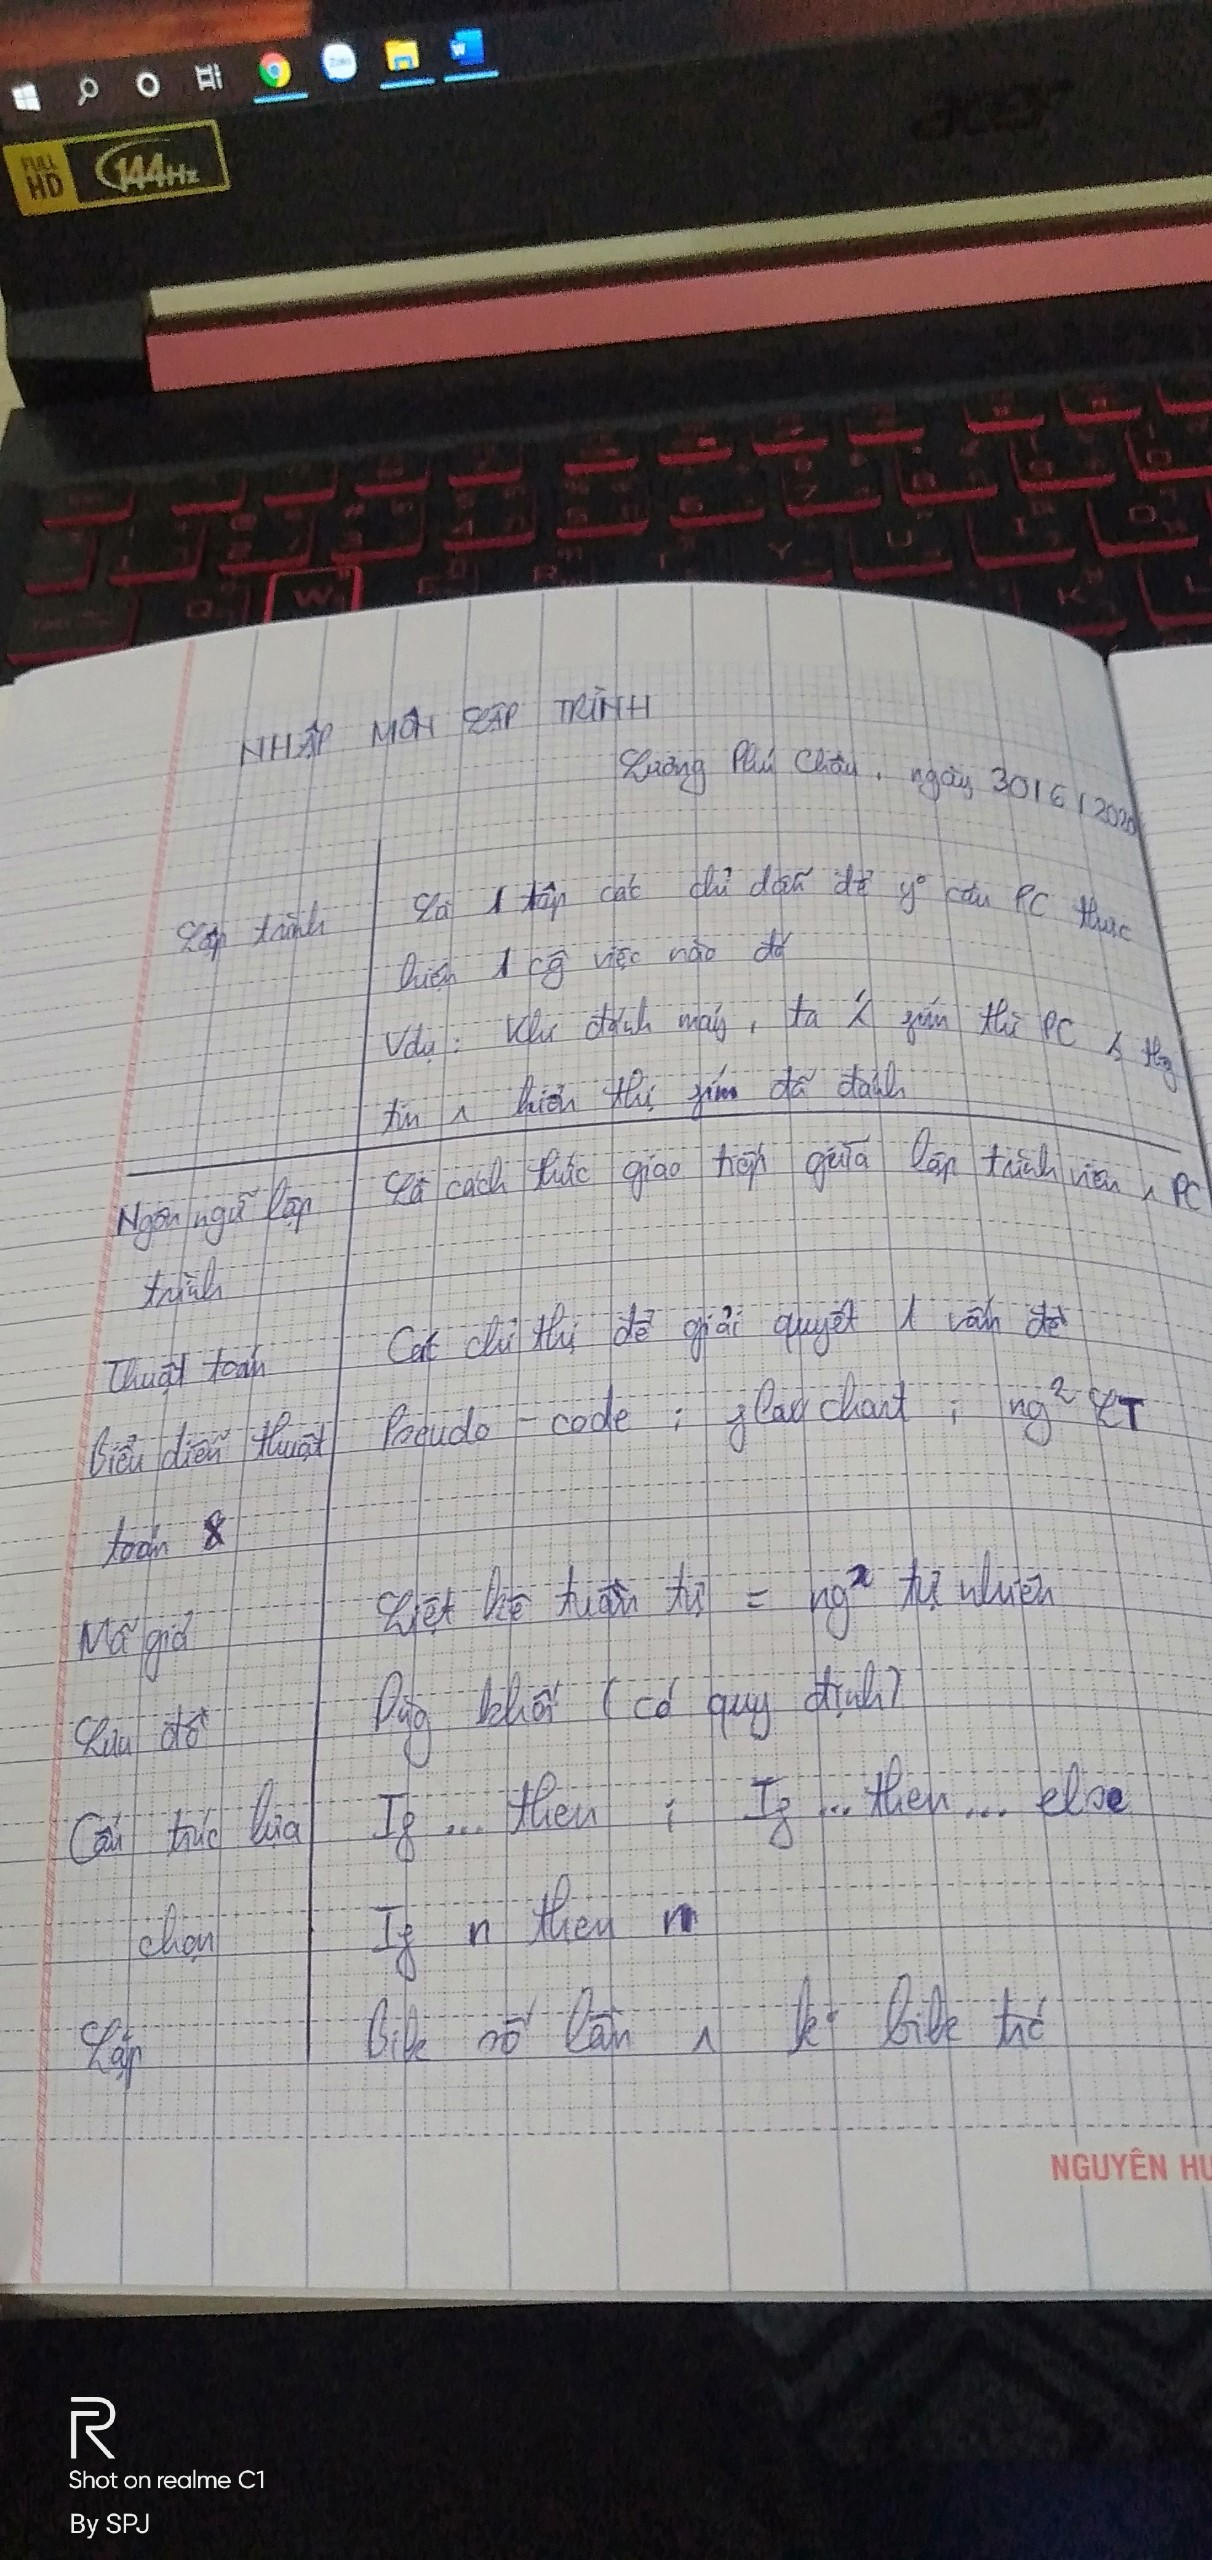 Zalo
W
FULL HD 144Hz
acer
Q W E R Y U I O K L
NHẬP MÔN LẬP TRÌNH
Lương Phú Châu, ngày 30/6/2020
Lập trình
Là 1 tập các chỉ dẫn để y° cầu PC thực
hiện 1 cg̃ việc nào đó
Vdụ: Khi đánh máy, ta phím thì PC thg
tin ^ hiển thị phím đã đánh
Ngôn ngữ lập
trình
Là cách thức giao tiếp giữa lập trình viên ^ PC
Thuật toán
Các chỉ thị để giải quyết 1 vấn đề
Biểu diễn thuật
toán
Pseudo - code ; flaw chart ; ng² LT
Mã giả
Liệt kê tuần tự = ng² tự nhiên
Lưu đồ
Dùg khối (có quy định)
Cấu trúc lựa
chọn
If ... then ; If ... then ... else
If n then m
Lặp
Bilk số lần ^ k° bilk trc
NGUYÊN HU
R
Shot on realme C1
By SPJ